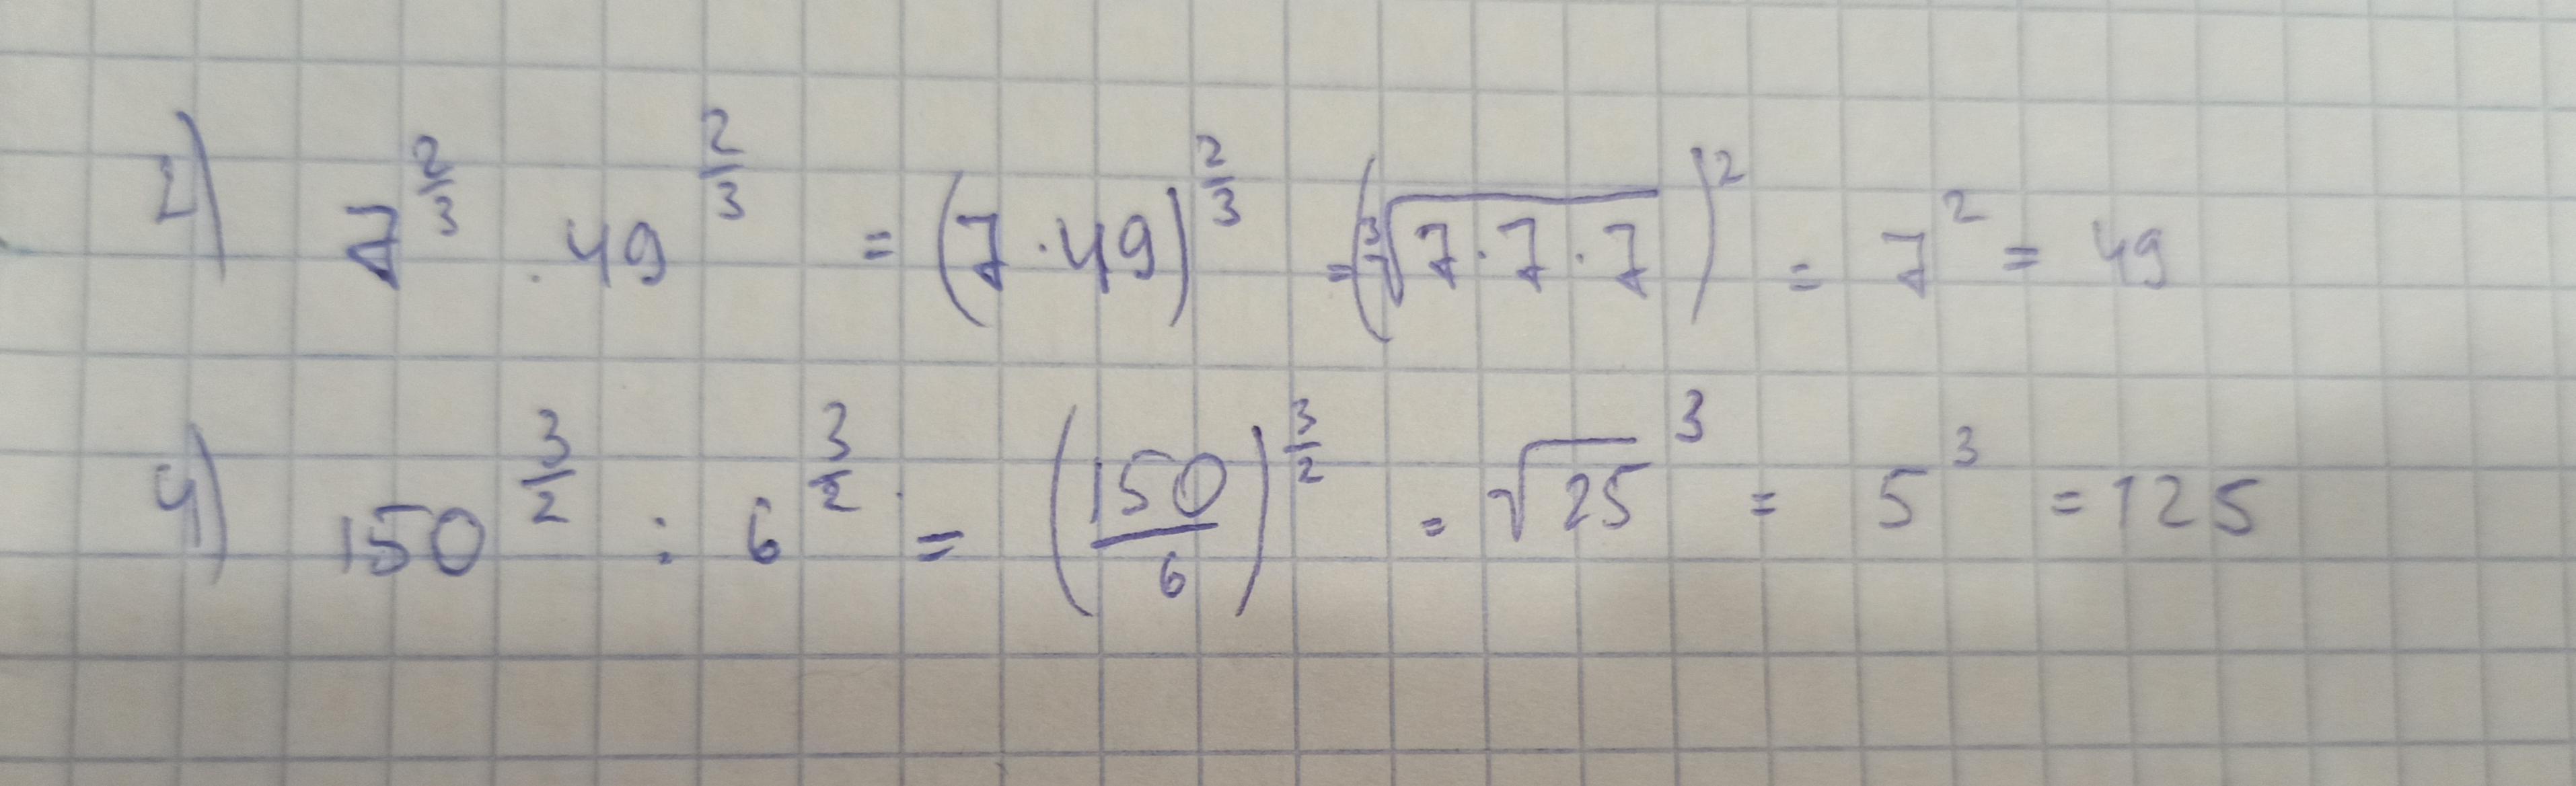 2) 7^{2/3} · 49^{2/3} = (7 · 49)^{2/3} = (∛(7 · 7 · 7))^2 = 7^2 = 49
4) 150^{3/2} : 6^{3/2} = (150/6)^{3/2} = √25^3 = 5^3 = 125